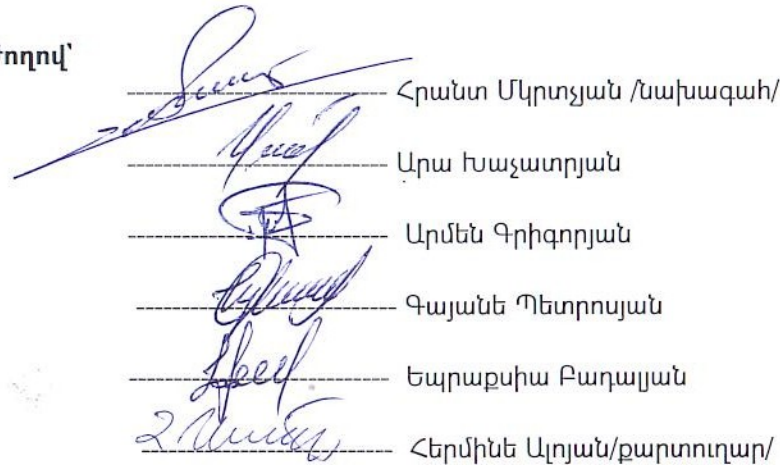 ժողով՝
Հրանտ Մկրտչյան /նախագահ/
Արա Խաչատրյան
Արմեն Գրիգորյան
Գայանե Պետրոսյան
Եպրաքսիա Բադալյան
Հերմինե Ալոյան/քարտուղար/